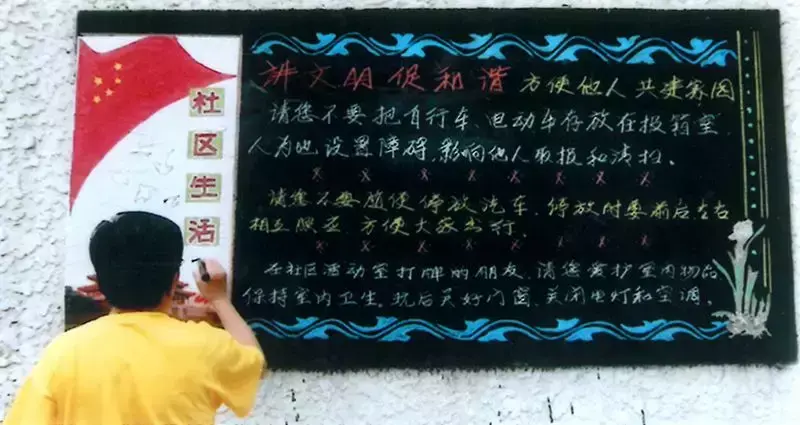 社区生活
讲文明促和谐 方便他人 共建家园
请您不要把自行车、电动车存放在投箱室,
人为地设置障碍,影响他人取报和清扫。
请您不要随便停放汽车,停放时要前后左右
相互照应,方便大家出行。
在社区活动室打牌的朋友,请您爱护室内物品
保持室内卫生。玩后关好门窗、关闭电灯和空调。